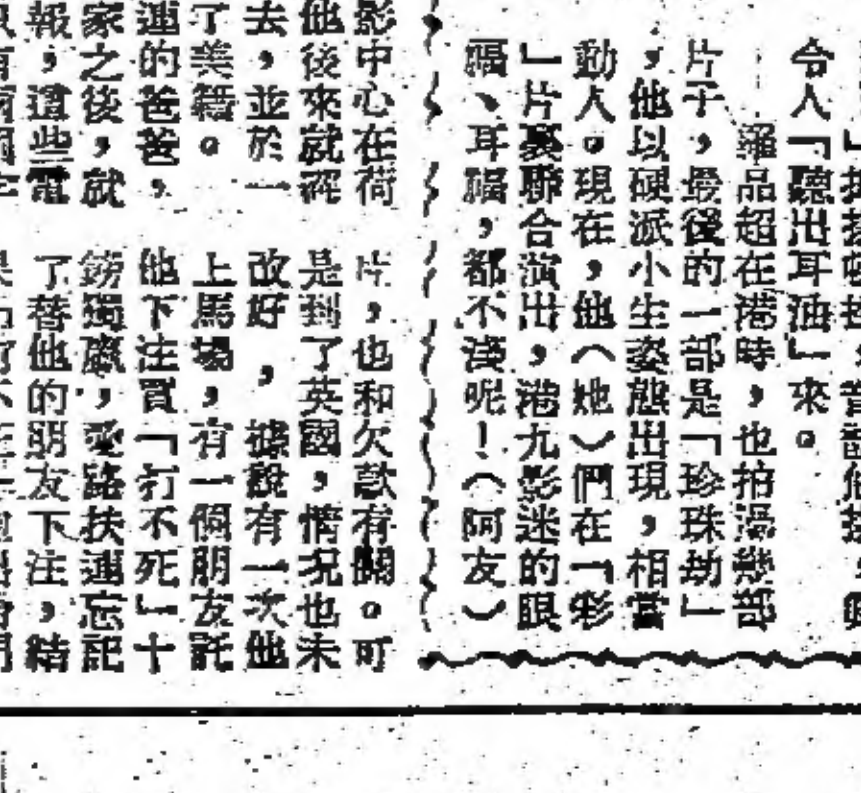 令人「聽出耳油」來。
羅品超在港時，也拍過幾部
片子，最後的一部是「珍珠劫」
，他以硬派小生姿態出現，相當
動人。現在，他（她）們在「彩
」片裏聯合演出，港九影迷的眼
福、耳福，都不淺呢！（阿友）
影中心在荷
他後來就
去，並於一
了美籍。
運的爸爸，
家之後，就
報，這些電
片，也和欠款有關。可
是到了英國，情況也未
改好，據說有一次他
上馬場，有一個朋友託
他下注買「打不死」十
鎊獨贏，愛路扶運忘記
了替他的朋友下注，結